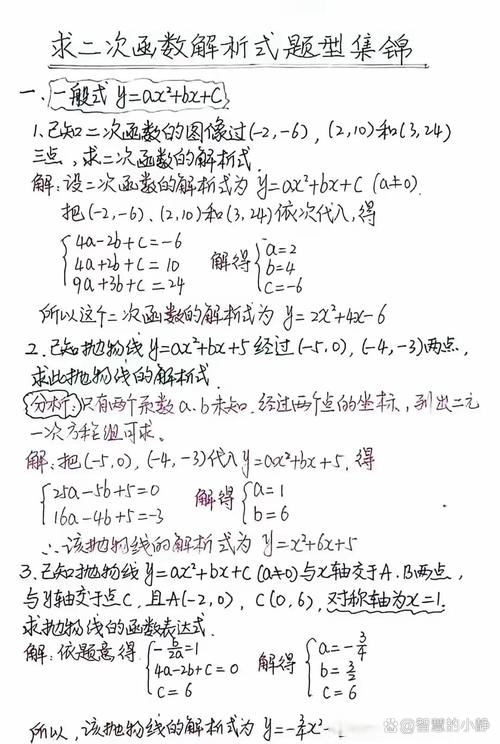 求二次函数解析式题型集锦
一、一般式 y=ax²+bx+c
1.已知二次函数的图像过(-2,-6),(2,10)和(3,24)
三点,求二次函数的解析式.
解:设二次函数的解析式为 y=ax²+bx+c (a≠0).
把(-2,-6)、(2,10)和(3,24)依次代入,得
4a-2b+c=-6
4a+2b+c=10
9a+3b+c=24
解得
a=2
b=4
c=-6
所以这个二次函数的解析式为 y=2x²+4x-6
2.已知抛物线y=ax²+bx+5经过(-5,0),(-4,-3)两点,
求此抛物线的解析式.
分析:只有两个系数a、b未知,经过两个点的坐标,列出二元
一次方程组可求。
解:把(-5,0),(-4,-3)代入y=ax²+bx+5,得
25a-5b+5=0
16a-4b+5=-3
解得
a=1
b=6
∴该抛物线的解析式为 y=x²+6x+5
3.已知抛物线y=ax²+bx+c(a≠0)与x轴交于A、B两点,
与y轴交于点C,且A(-2,0),C(0,6),对称轴为x=1.
求抛物线的函数表达式.
解:依题意得
-b/2a=1
4a-2b+c=0
c=6
解得
a=-3/4
b=3/2
c=6
所以,该抛物线的解析式为 y=-3/4x²-
@智慧的小静